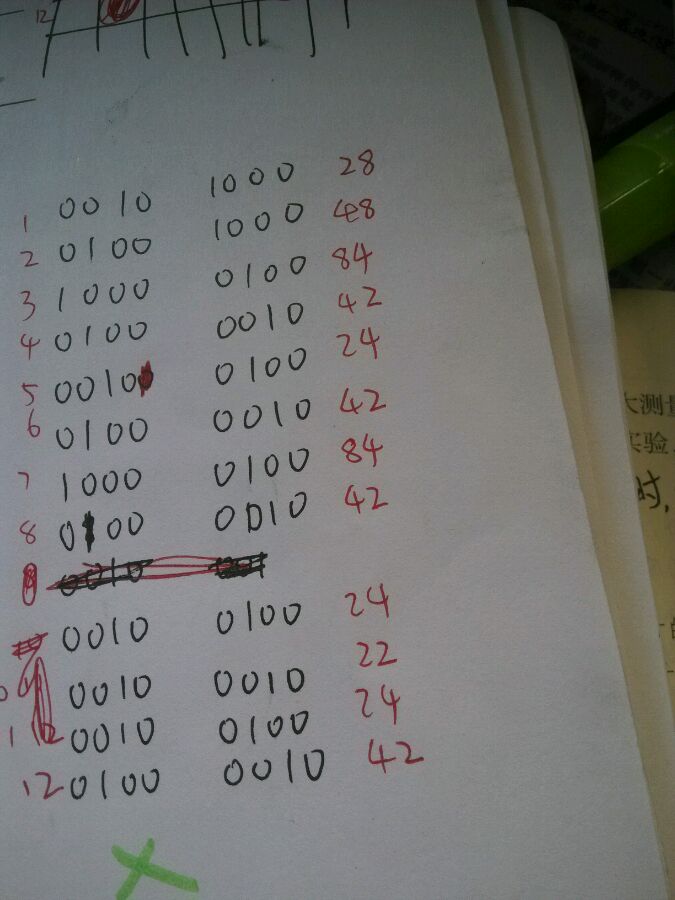 12
1 0010 1000 28
2 0100 1000 48
3 1000 0100 84
4 0100 0010 42
5 0010 0100 24
6 0100 0010 42
7 1000 0100 84
8 0100 0010 42
0010 0100 24
0010 0010 22
0010 0100 24
12 0100 0010 42
大测量
实验
时,